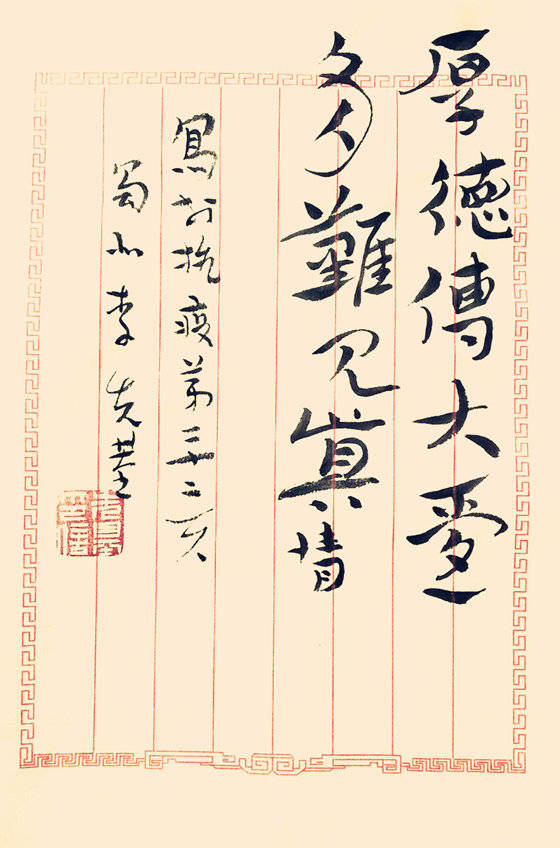 厚德傳大愛
多難見眞情
寫於抗疫第三十二天
蜀北李先基